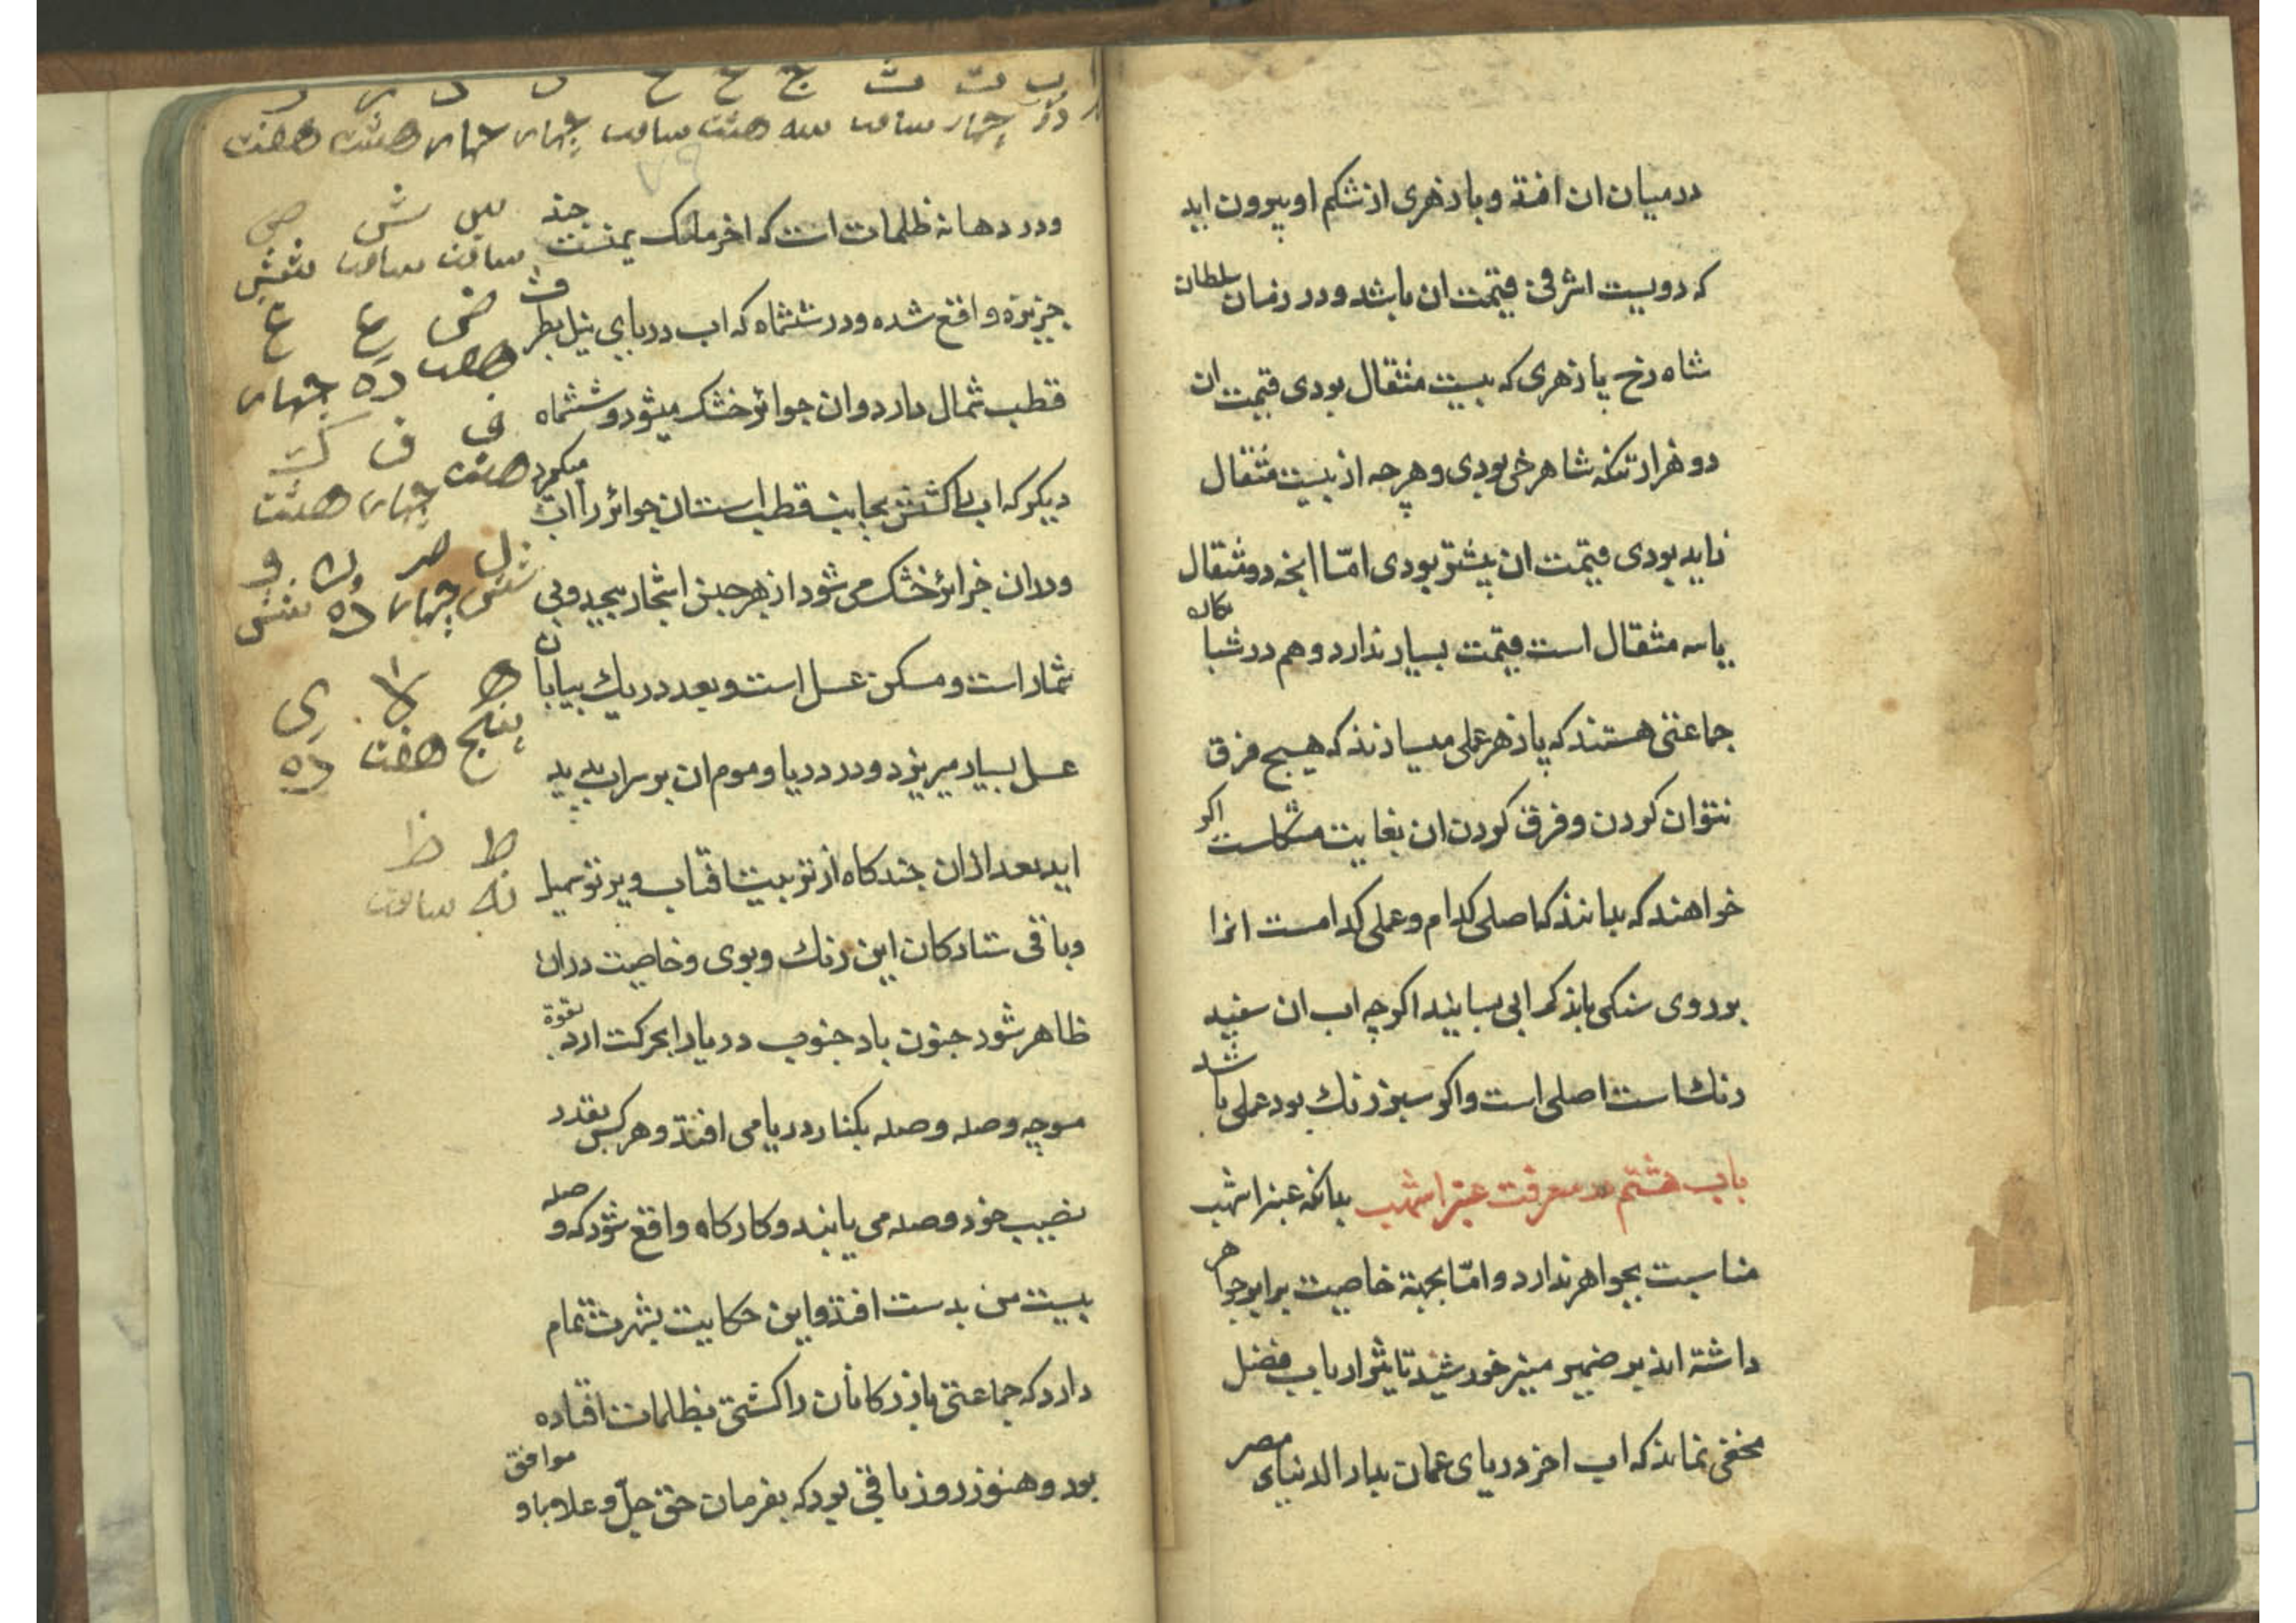 درمیان ان افتد و بادزهری از شکم او بیرون اید
که دویست اشرفی قیمت ان باشد و در زمان سلطان
شاه رخ پادزهری که بیست مثقال بودی قیمت ان
دو هزار تنکه شاهرخی بودی و هرچه از بیست مثقال
زاید بودی قیمت ان بیشتر بودی امّا انچه دو مثقال
یا سه مثقال است قیمت بسیار ندارد و هم در شبانکاره
جماعتی هستند که پادزهر عملی میسازند که هیچ فرق
نتوان کردن و فرق کردن ان بغایت مشکلست اکر
خواهند که بدانند که اصلی کدام و عملی کدامست انرا
بر روی سنکی باندک ابی بسایند اکرچه اب ان سفید
رنک است اصلی است و اکر سبز رنک بود عملی باشد
باب هشتم در معرفت عنبر اشهب بدانکه عنبر اشهب
مناسبت بجواهر ندارد و امّا بجهة خاصیت برابر جواهر
داشته اند بر ضمیر منیر خورشید تاثیر ارباب فضل
مخفی نماند که اب اخر دریای عمان بدار الدنیای مصر
ا ب ت ث ج ح خ د ذ ر ز
دو چهار سافت سه هشت سافت چهار چهار هشت هفت
و در دهانه ظلمات است که اخر ملک یمنست چند
جزیره واقع شده و در ششماه که اب دریای نیل بطرف
قطب شمال دارد و ان جوائر خشک میشود و ششماه
دیکر که اب را کشش بجانب قطب است ان جوائر را اب میکیرد
و دران جزائر خشک می شود از هر جنس اشجار بیحد و بی
شمار است و مسکن عسل است و بعد در یک بیابان
عسل بسیار میریزد و در دریا و موم ان بر سر اب پدید
اید بعد ازان چندکاه از تربیت افتاب و پرتو سهیل
و باقی ستارکان این رنک و بوی و خاصیت دران
ظاهر شود جنون باد جنوب دریا را بحرکت ارد بقوة
موجه وصله وصله بکنار دریا می افتد و هرکس بقدر
نصیب خود وصله می یابند و کارکاه واقع شود که وصله
بیست من بدست افتد و این حکایت بشهرت تمام
دارد که جماعتی بازرکانان را کشتی بظلمات افتاده
بود و هنوز روز باقی بود که بفرمان حق جلّ و علا و باد موافق
س ش ص
سافت سافت شش
ض ع غ
هفت ده چهار
ف ق ک
هشت چهار هشت
ل م ن و
شش چهار ده شش
ه لا ی
پنج هفت ده
ط ظ
نه سافت